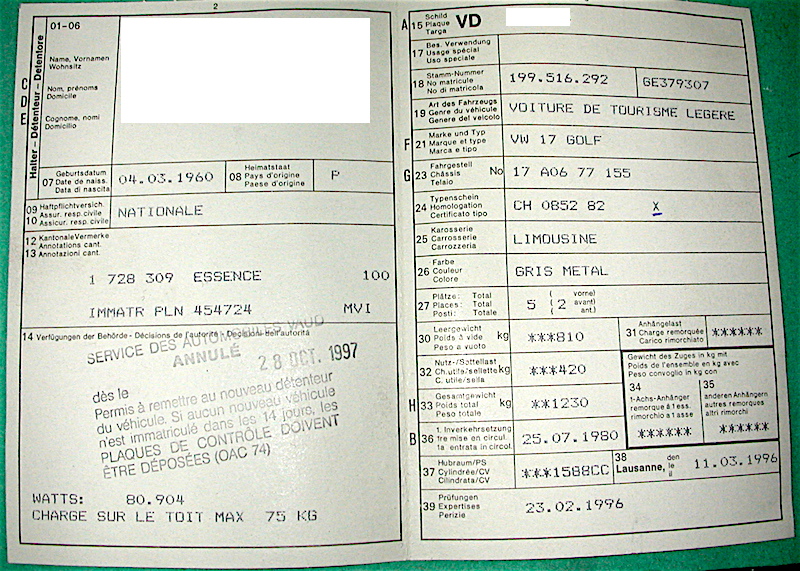 2
01-06
C D E
Halter – Détenteur – Detentore
Name, Vornamen
Wohnsitz
Nom, prénoms
Domicile
Cognome, nomi
Domicilio
07 Geburtsdatum
Date de naiss.
Data di nascita
04.03.1960
08 Heimatstaat
Pays d'origine
Paese d'origine
P
09 Haftpflichtversich.
10 Assur. resp. civile
Assicur. resp. civile
NATIONALE
12 Kantonale Vermerke
13 Annotations cant.
Annotazioni cant.
1 728 309 ESSENCE 100
IMMATR PLN 454724 MVI
14 Verfügungen der Behörde - Décisions de l'autorité - Decisioni dell'autorità
SERVICE DES AUTOMOBILES VAUD
ANNULÉ 28 OCT. 1997
dès le
Permis à remettre au nouveau détenteur
du véhicule. Si aucun nouveau véhicule
n'est immatriculé dans les 14 jours, les
PLAQUES DE CONTRÔLE DOIVENT
ÊTRE DÉPOSÉES (OAC 74)
WATTS: 80.904
CHARGE SUR LE TOIT MAX 75 KG
A 15 Schild
Plaque
Targa
VD
17 Bes. Verwendung
Usage spécial
Uso speciale
18 Stamm-Nummer
No matricule
No di matricola
199.516.292 GE379307
19 Art des Fahrzeugs
Genre du véhicule
Genere del veicolo
VOITURE DE TOURISME LEGERE
F 21 Marke und Typ
Marque et type
Marca e tipo
VW 17 GOLF
G 23 Fahrgestell
Châssis No
Telaio
17 A06 77 155
24 Typenschein
Homologation
Certificato tipo
CH 0852 82 X
25 Karosserie
Carrosserie
Carrozzeria
LIMOUSINE
26 Farbe
Couleur
Colore
GRIS METAL
27 Plätze: Total
Places: Total
Posti: Totale
5 (2 vorne)
( avant)
( ant.)
30 Leergewicht
Poids à vide kg
Peso a vuoto
***810
31 Anhängelast
Charge remorquée
Carico rimorchiato
******
32 Nutz-/Sattellast
Ch. utile/sellette kg
C. utile/sella
***420
Gewicht des Zuges in kg mit
Poids de l'ensemble en kg avec
Peso convoglio in kg con
H 33 Gesamtgewicht
Poids total kg
Peso totale
**1230
34
1-Achs-Anhänger
remorque à 1 ess.
rimorchio a 1 asse
******
35
anderen Anhängern
autres remorques
altri rimorchi
******
B 36 1. Inverkehrsetzung
1re mise en circul.
1a entrata in circol.
25.07.1980
37 Hubraum/PS
Cylindrée/CV
Cilindrata/CV
***1588CC
38 Lausanne, den
le
il
11.03.1996
39 Prüfungen
Expertises
Perizie
23.02.1996